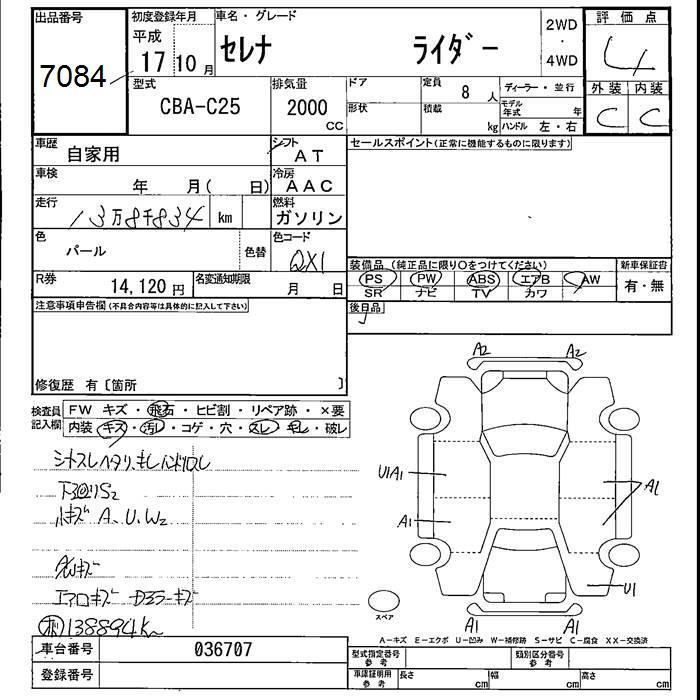 出品番号 初度登録年月 車名・グレード 2WD・4WD 評価点
7084 平成 17年 10月 セレナ ライダー 4
型式 排気量 ドア 定員 8人 ディーラー・並行 外装 内装
CBA-C25 2000 CC 形状 積載 kg モデル年式 年 C C
ハンドル 左・右
車歴 自家用 シフト AT セールスポイント(正常に機能するものに限ります)
車検 年 月( 日) 冷房 AAC
走行 13万8千834 km 燃料 ガソリン
色 パール 色替 色コード QX1
装備品 (純正品に限り○をつけてください) 新車保証書
R券 14,120円 名変通知期限 月 日 PS PW ABS エアB AW 有・無
SR ナビ TV カワ
注意事項申告欄(不具合内容等は具体的に記入して下さい) 後日品
修復歴 有〔箇所 〕
検査員記入欄 FW キズ・飛石・ヒビ割・リペア跡・×要
内装 キズ・汚レ・コゲ・穴・スレ・キレ・破レ
シートスレヘタリ、キレ ハンドルスレ
下回りS2
小キズ A、U、W2
エアロキズ
138894K
A2 A2
U1A1 A1
A1
U1
A1 A1
スペア
A-キズ E-エクボ U-凹み W-補修跡 S-サビ C-腐食 XX-交換済
車台番号 036707 型式指定番号 参考 類別区分番号 参考
登録番号 車庫証明用 参考 長さ cm 幅 cm 高さ cm